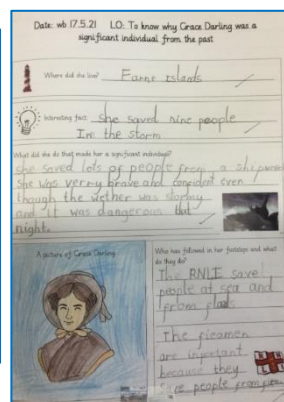 Date: wb 17.5.21 LO: To know why Grace Darling was a
significant individual from the past
Where did she live? Farne Islands
Interesting fact: She saved nine people
In the storm
What did she do that made her a significant individual?
She saved lots of people from a Shipwreck
She was verry brave and confident even
though the wether was stormy
and it was dangerous that
night.
A picture of Grace Darling
Who has followed in her footsteps and what
do they do?
The RNLI save
people at sea and
from
The firemen
are important
because they
save people from